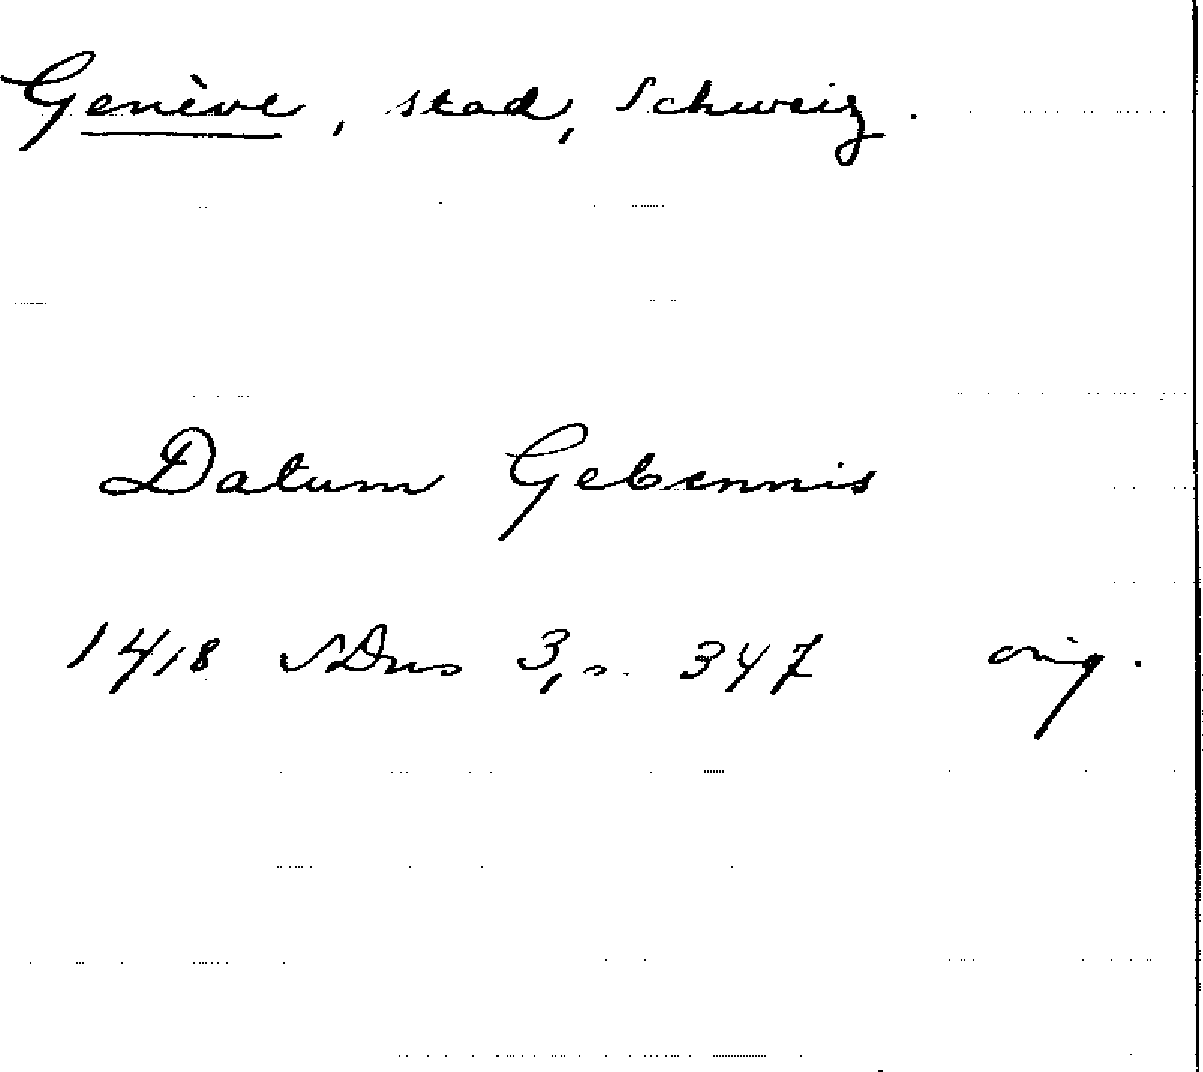 Genève, stad, Schweiz.
Datum Gebennis
1418 SDns 3, s. 347 orig.